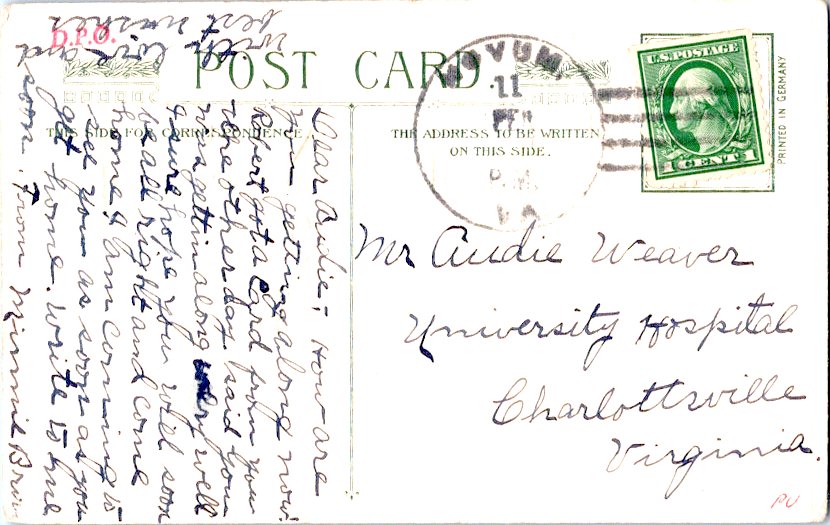 D.P.O.
POST CARD.
THIS SIDE FOR CORRESPONDENCE.
THE ADDRESS TO BE WRITTEN
ON THIS SIDE.
NOVUM,
11
P.M.
VA
U.S. POSTAGE
1 CENT 1
PRINTED IN GERMANY
Mr Audie Weaver
University Hospital
Charlottsville
Virginia.
Dear Audie; How are
you getting along now.
Robert got a card from you
the other day, said you
was gettin along very well
I sure hope you will soon
be all right and come
home. I am coming to
see you as soon as you
get home. Write to me
soon. From Minnie
with love and
best wishes
PU